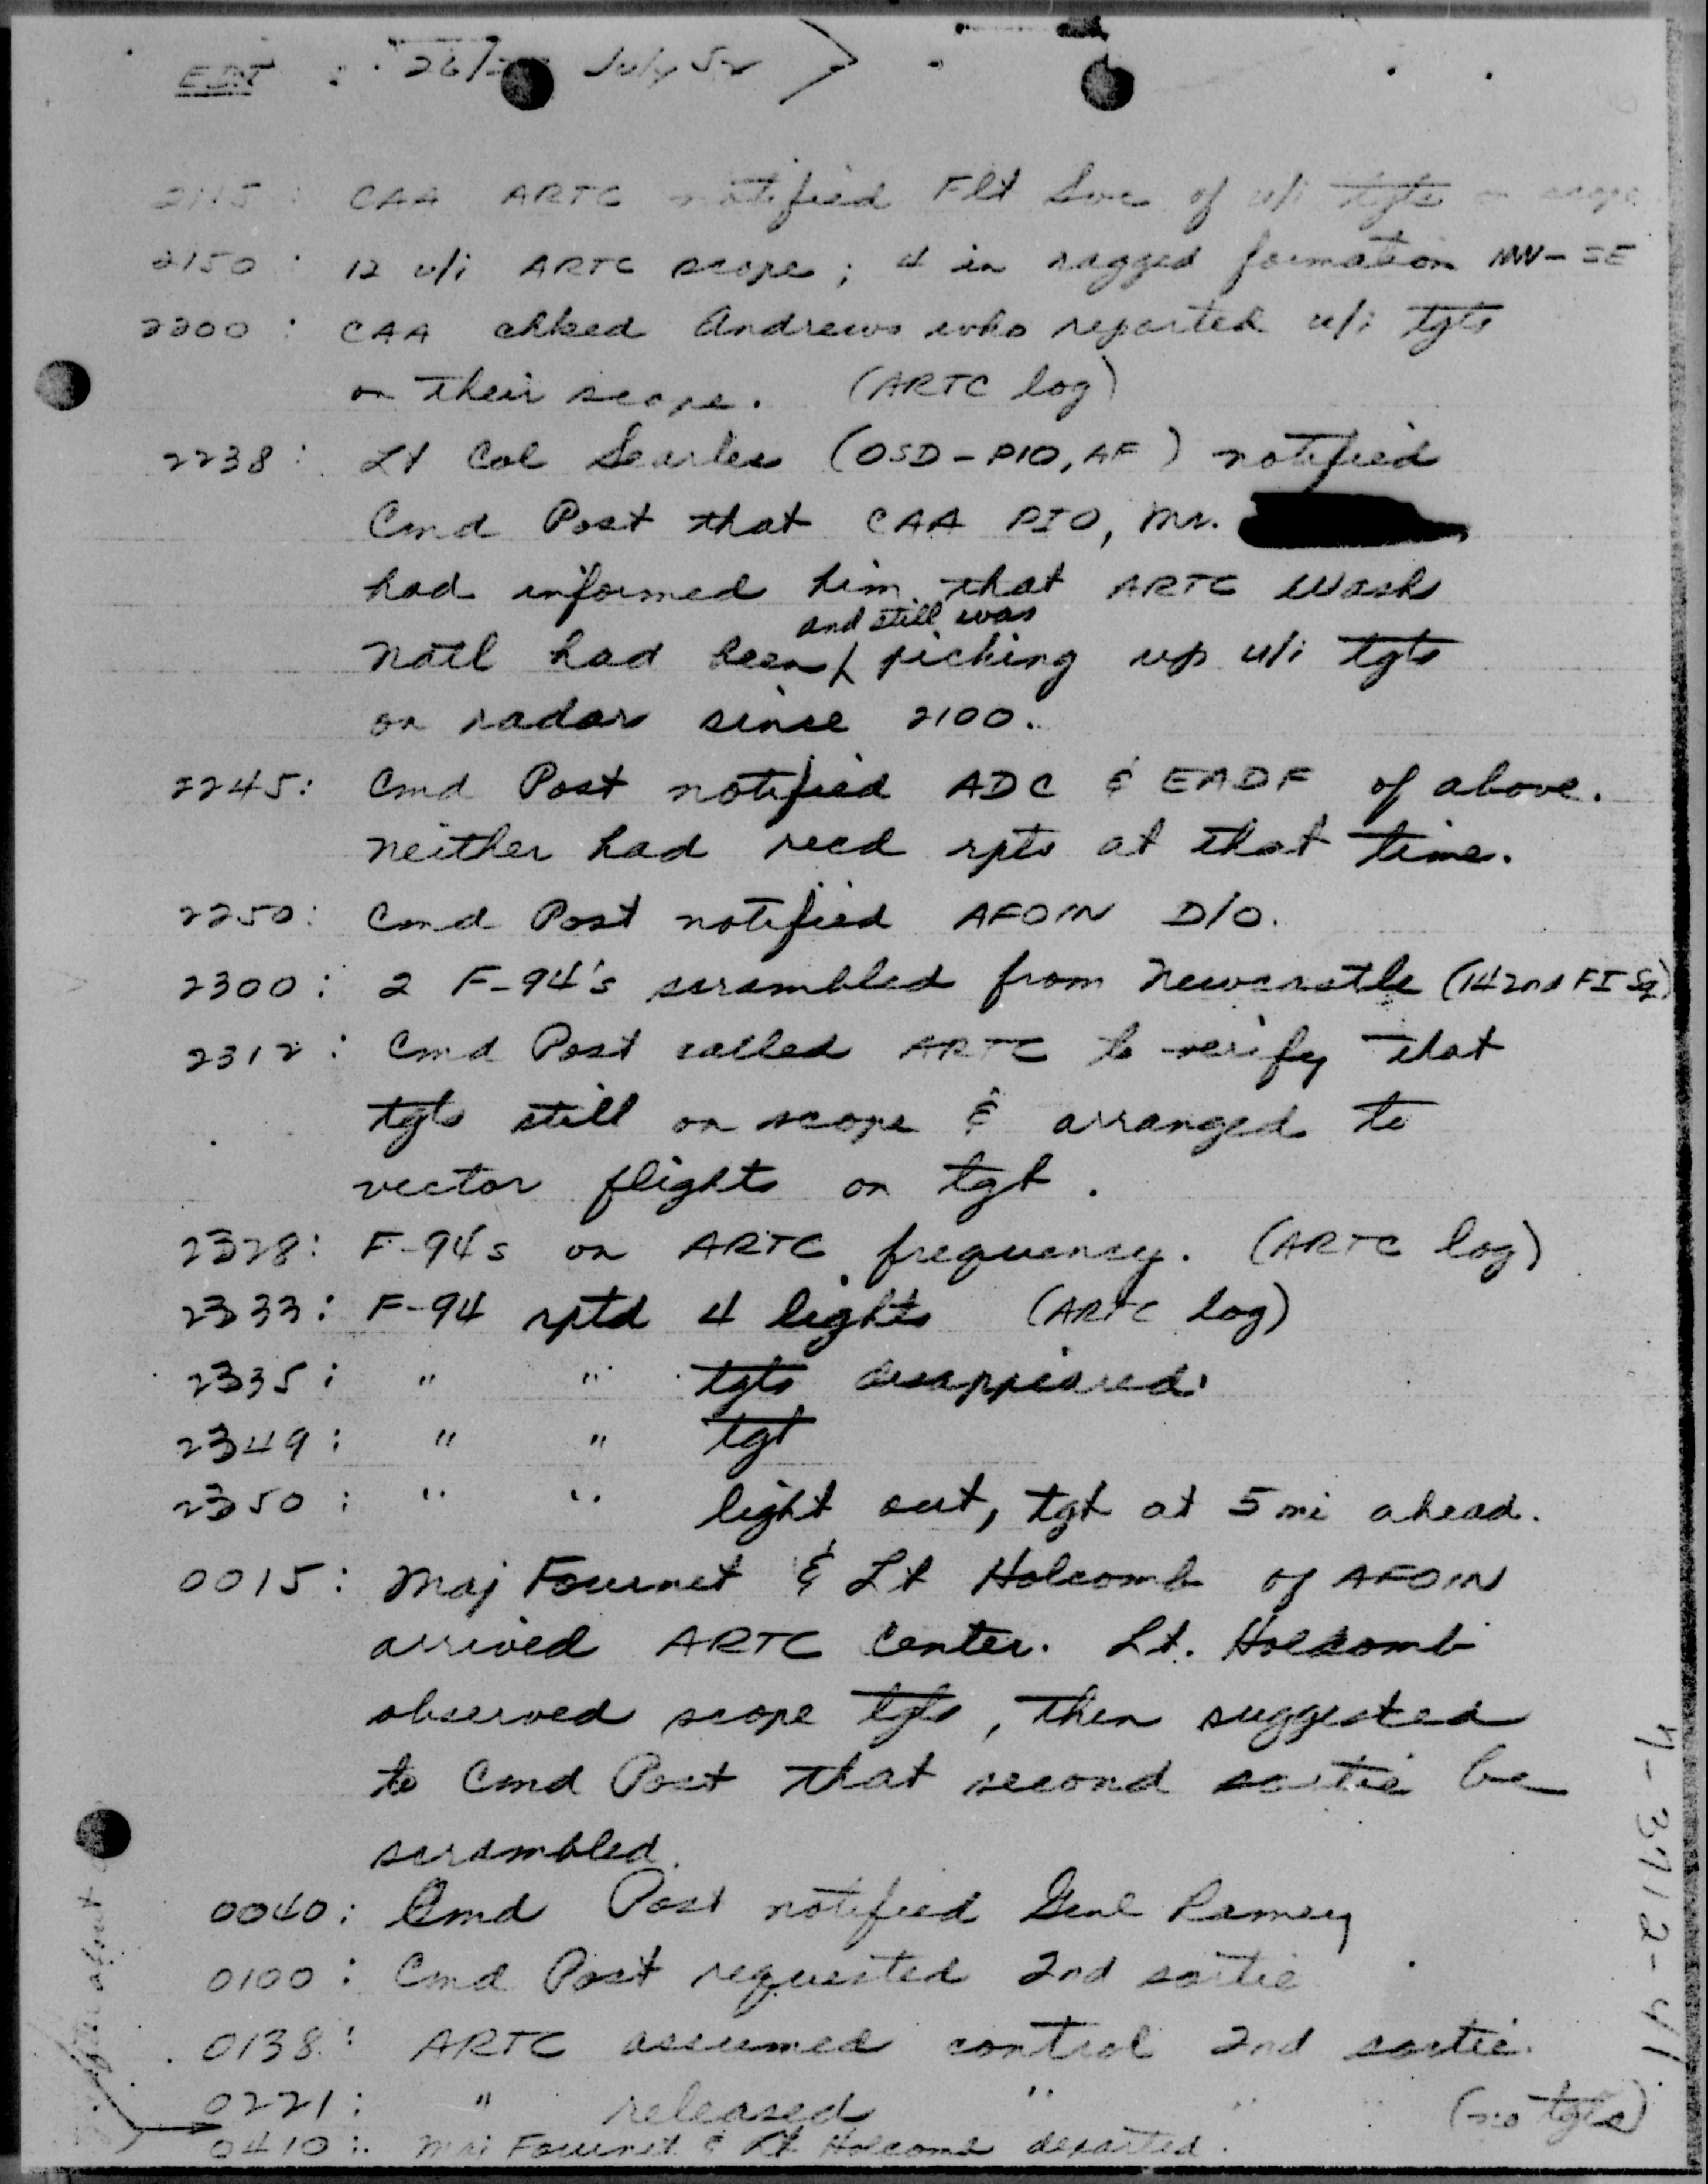 EDT : 26/ July 52
2115 : CAA ARTC notified Flt Svc of u/i tgts on scope
2150 : 12 u/i ARTC scope ; 4 in ragged formation NW-SE
2200 : CAA chked Andrews who reported u/i tgts
on their scope. (ARTC log)
2238 : Lt Col Searles (OSD-PIO, AF) notified
Cmd Post that CAA PIO, Mr.
had informed him that ARTC Wash
and still was
Natl had been picking up u/i tgts
on radar since 2100.
2245: Cmd Post notified ADC & EADF of above.
Neither had recd rpts at that time.
2250: Cmd Post notified AFOIN D/O.
2300 : 2 F-94's scrambled from Newcastle (142nd FI Sq)
2312 : Cmd Post called ARTC to verify that
tgts still on scope & arranged to
vector flights on tgt.
2328: F-94s on ARTC frequency. (ARTC log)
2333: F-94 rptd 4 lights (ARTC log)
2335: " " tgts disappeared.
2349: " " tgt
2350: " " light out, tgt at 5 mi ahead.
0015: Maj Fournet & Lt Holcomb of AFOIN
arrived ARTC Center. Lt. Holcomb
observed scope tgts, then suggested
to Cmd Post that second sortie be
scrambled.
0040: Cmd Post notified Genl Ramey
0100: Cmd Post requested 2nd sortie
0138: ARTC assumed control 2nd sortie.
0221: " released " " " (no tgts)
0410: Maj Fournet & Lt Holcomb departed.
4-3712-41